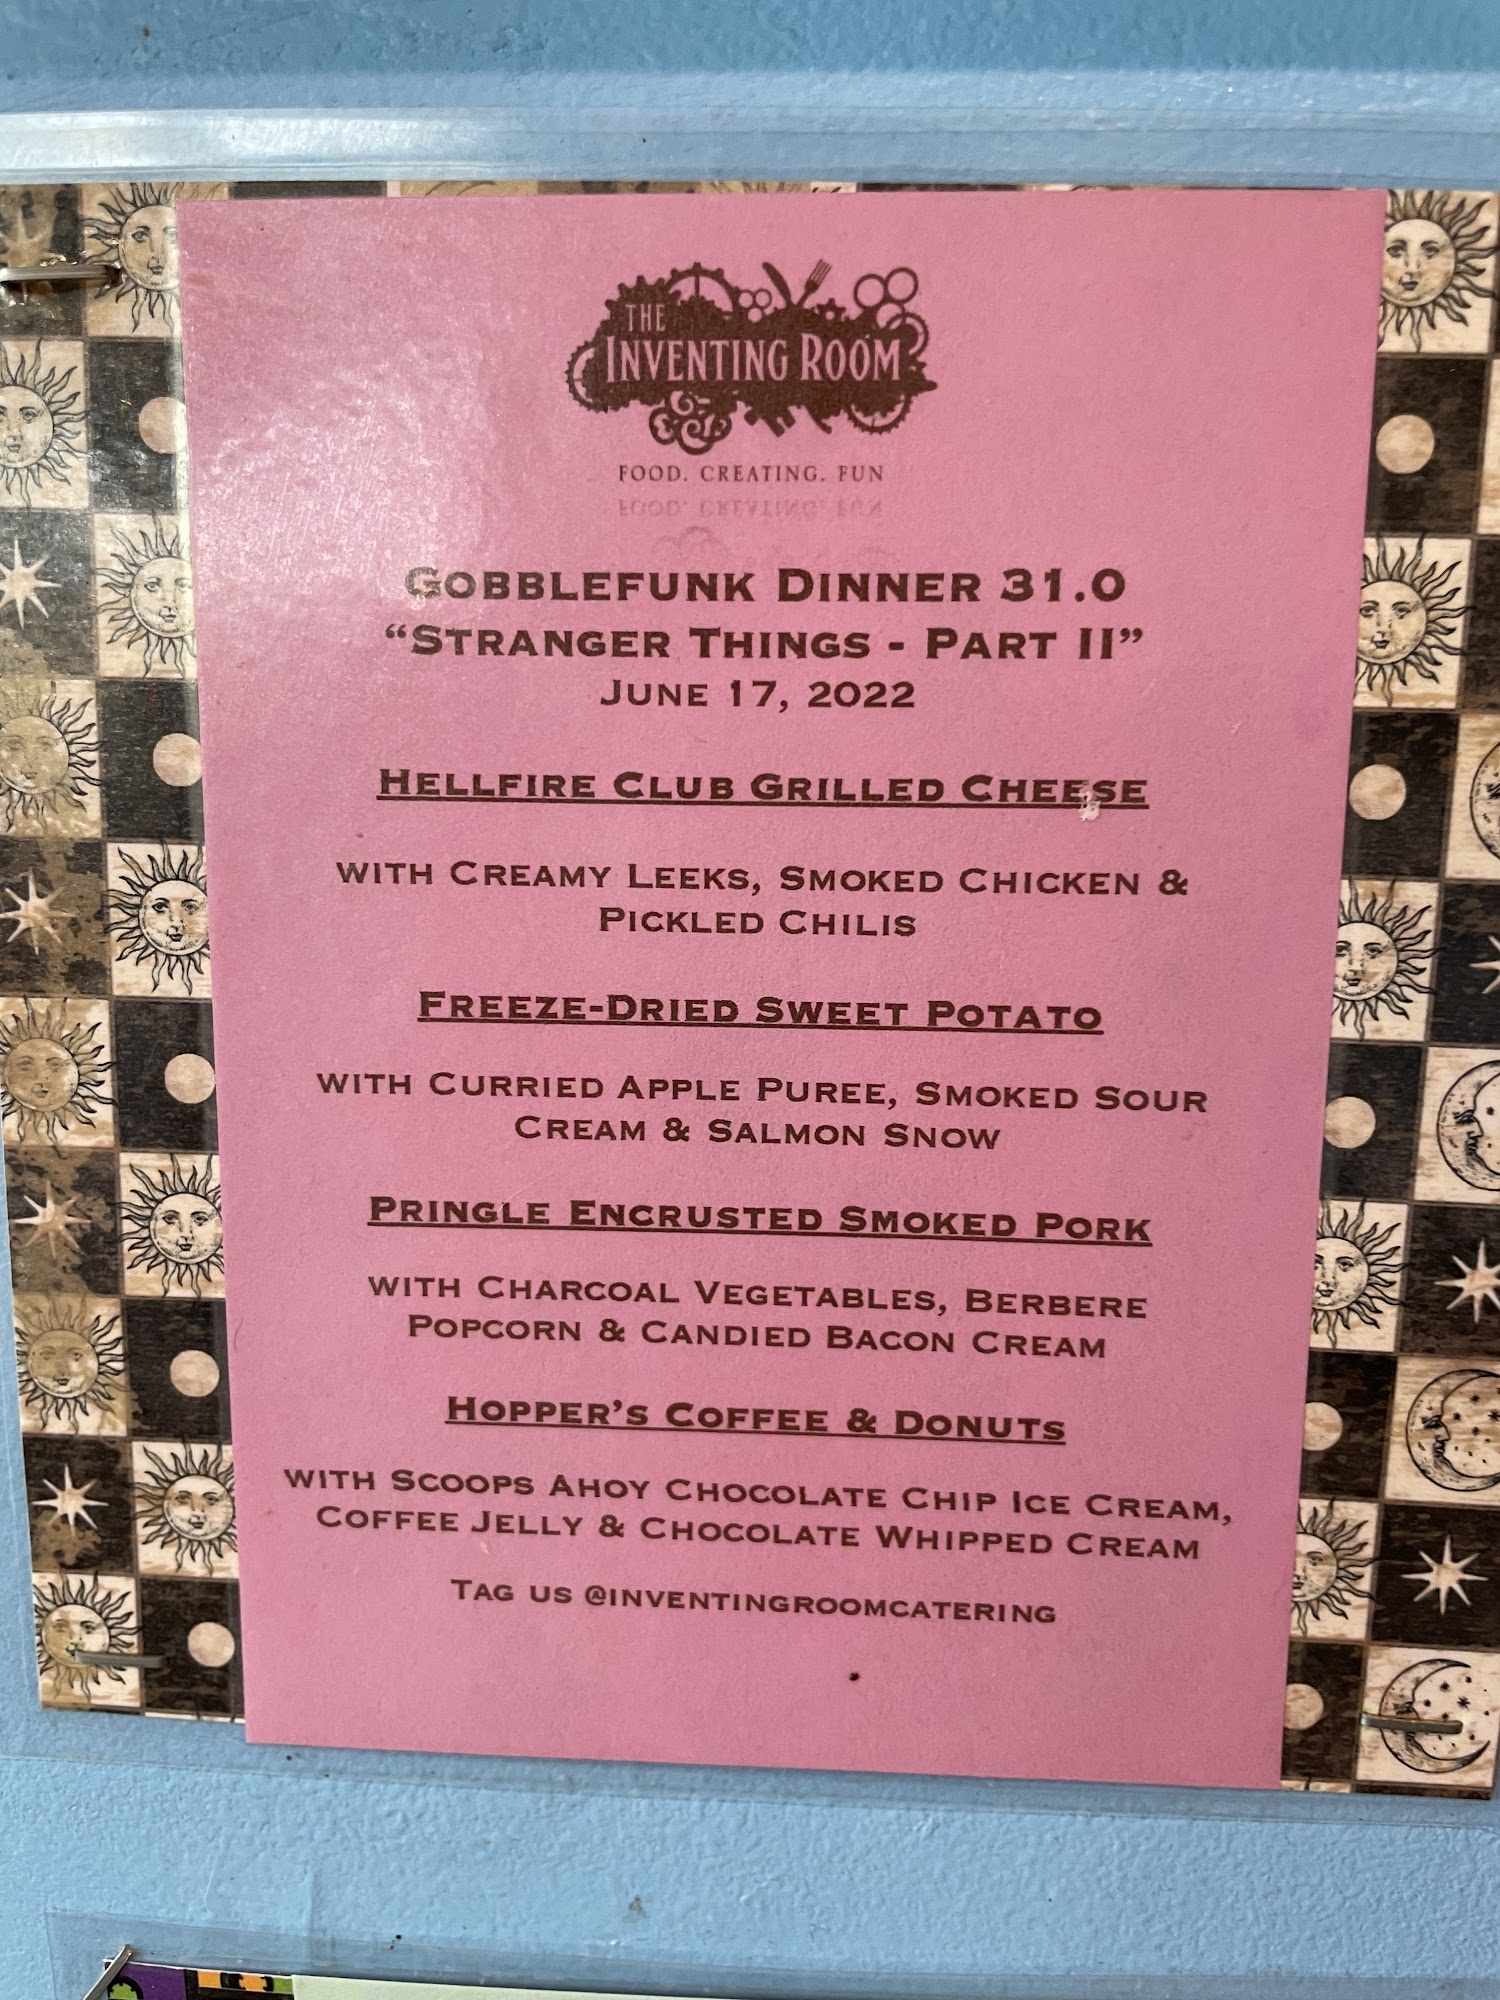 THE
INVENTING ROOM
FOOD. CREATING. FUN
GOBBLEFUNK DINNER 31.0
“STRANGER THINGS - PART II”
JUNE 17, 2022
HELLFIRE CLUB GRILLED CHEESE
WITH CREAMY LEEKS, SMOKED CHICKEN &
PICKLED CHILIS
FREEZE-DRIED SWEET POTATO
WITH CURRIED APPLE PUREE, SMOKED SOUR
CREAM & SALMON SNOW
PRINGLE ENCRUSTED SMOKED PORK
WITH CHARCOAL VEGETABLES, BERBERE
POPCORN & CANDIED BACON CREAM
HOPPER’S COFFEE & DONUTS
WITH SCOOPS AHOY CHOCOLATE CHIP ICE CREAM,
COFFEE JELLY & CHOCOLATE WHIPPED CREAM
TAG US @INVENTINGROOMCATERING